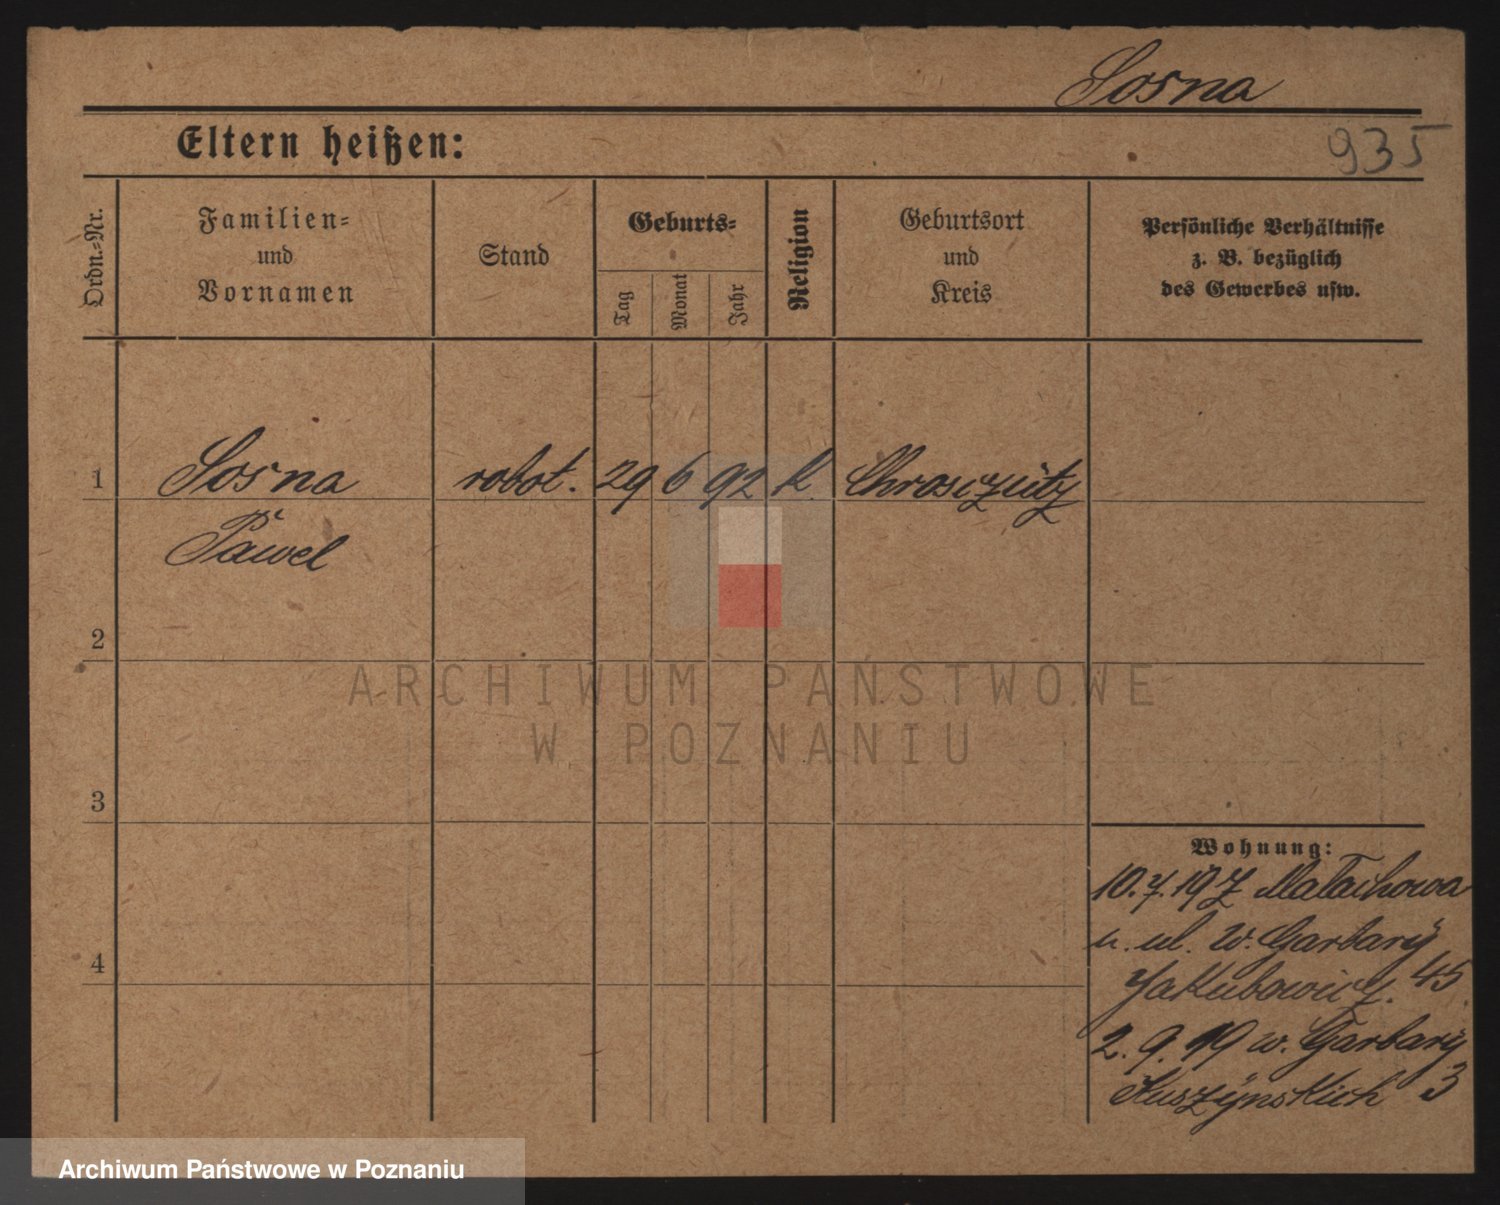 Sosna
Eltern heißen:
935
Ordn.-Nr.
Familien- und Vornamen
Stand
Geburts-
Tag
Monat
Jahr
Religion
Geburtsort und Kreis
Persönliche Verhältnisse
z. B. bezüglich
des Gewerbes usw.
1 Sosna robot. 29 6 92 k. Chrosczütz
Pawel
2
ARCHIWUM PAŃSTWOWE
W POZNANIU
3
Wohnung:
10.7.19 z Małachowa
n. ul. W. Garbary
4
Jakubowicz. 45
2. 9. 19 w. Garbary
3
Archiwum Państwowe w Poznaniu